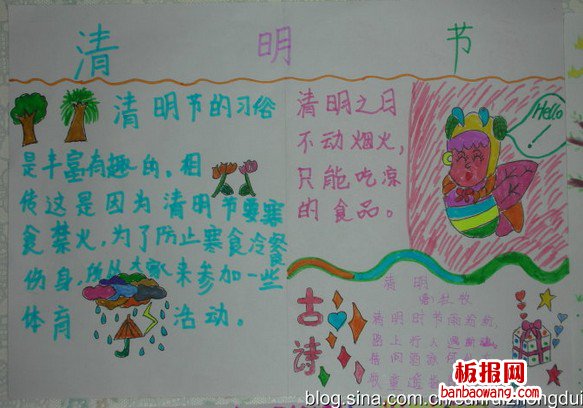 清明节
清明节的习俗
是丰富有趣的。相
传这是因为清明节要寒
食禁火,为了防止寒食冷餐
伤身,所以大家来参加一些
体育活动。
清明之日
不动烟火,
只能吃凉
的食品。
Hello
!
古诗
清明
清明时节雨纷纷,
路上行人
借问酒家
牧童遥
板报网
banbaowang.com
blog.sina.com.cn